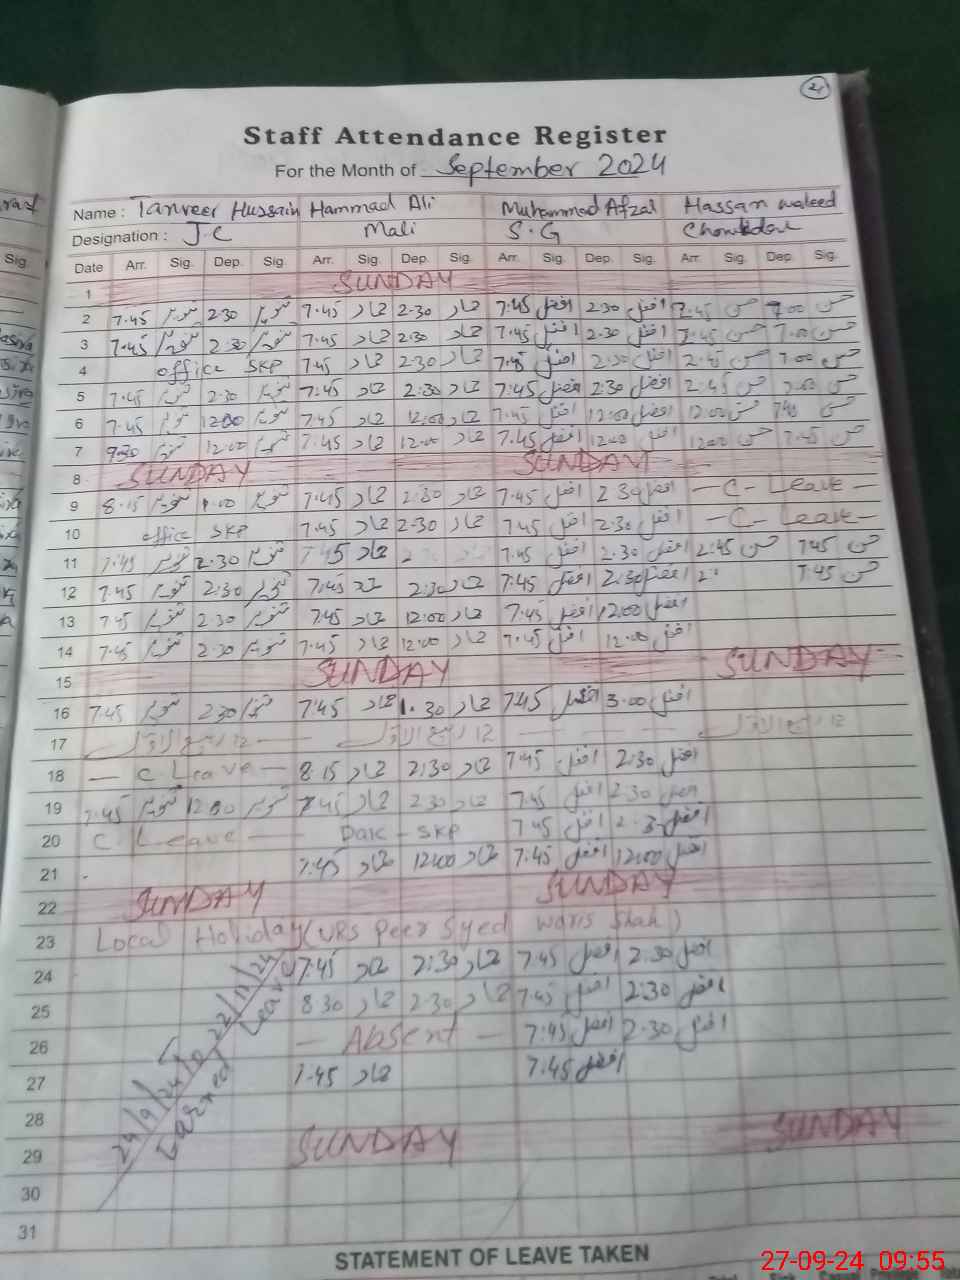 21
Staff Attendance Register
For the Month of September 2024
Name : Tanveer Hussain Hammad Ali Muhammad Afzal Hassan waleed
Designation : J.C Mali S.G Chowkdar
Sig. Date Arr. Sig. Dep. Sig. Arr. Sig. Dep. Sig. Arr. Sig. Dep. Sig. Arr. Sig. Dep. Sig.
1 SUNDAY
2 7.45 تنویر 2:30 تنویر 7.45 حماد 2.30 حماد 7:45 افضل 2:30 افضل 2.45 حسن 7.00 حسن
3 7.45 تنویر 2:30 تنویر 7.45 حماد 2:30 حماد 7.45 افضل 2.30 افضل 2.45 حسن 7.00 حسن
4 office SKP 7.45 حماد 2.30 حماد 7.45 افضل 2:30 افضل 2.45 حسن 7.00 حسن
5 7.45 تنویر 2:30 تنویر 7:45 حماد 2:30 حماد 7:45 افضل 2:30 افضل 2:45 حسن 7.00 حسن
6 7.45 تنویر 12:00 تنویر 7.45 حماد 12:00 حماد 7.45 افضل 12:00 افضل 12:00 حسن 7.45 حسن
7 9:30 تنویر 12:00 تنویر 7.45 حماد 12:00 حماد 7.45 افضل 12:00 افضل 12:00 حسن 7.45 حسن
8 SUNDAY SUNDAY
9 8.15 تنویر 1.00 تنویر 7.45 حماد 2:30 حماد 7.45 افضل 2.30 افضل - C - Leave -
10 office SKP 7.45 حماد 2-30 حماد 7.45 افضل 2:30 افضل - C - Leave -
11 7.45 تنویر 2.30 تنویر 7.45 حماد 7.45 افضل 2.30 افضل 2:45 حسن 7.45 حسن
12 7.45 تنویر 2:30 تنویر 7.45 حماد 2:30 حماد 7:45 افضل 2:30 افضل 7.45 حسن
13 7.45 تنویر 2.30 تنویر 7.45 حماد 12:00 حماد 7.45 افضل 12:00 افضل
14 7.45 تنویر 2.30 تنویر 7.45 حماد 12:00 حماد 7.45 افضل 12:00 افضل
15 SUNDAY SUNDAY
16 7.45 تنویر 2:30 تنویر 7.45 حماد 1.30 حماد 7.45 افضل 3.00 افضل
17 12 ربیع الاول 12 ربیع الاول 12 ربیع الاول
18 - C Leave - 8.15 حماد 2:30 حماد 7.45 افضل 2:30 افضل
19 7.45 تنویر 12:00 تنویر 7.45 حماد 2.30 حماد 7.45 افضل 2:30 افضل
20 C Leave - Dak - SKP 7.45 افضل 2.3- افضل
21 7.45 حماد 12:00 حماد 7.45 افضل 12:00 افضل
22 SUNDAY SUNDAY
23 Local Holiday (URS Peer Syed Waris Shah)
24 7.45 حماد 2:30 حماد 7.45 افضل 2.30 افضل
25 8.30 حماد 2.30 حماد 7.45 افضل 2:30 افضل
26 - Absent - 7.45 افضل 2.30 افضل
27 7.45 حماد 7.45 افضل
24/9/24 to 22/11/24
Earned Leave
28
29 SUNDAY SUNDAY
30
31
STATEMENT OF LEAVE TAKEN
27-09-24 09:55